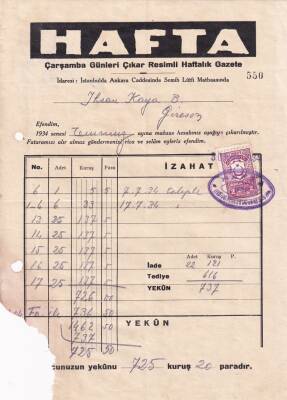 HAFTA
Çarşamba Günleri Çıkar Resimli Haftalık Gazete
İdaresi: İstanbulda Ankara Caddesinde Semih Lûtfi Matbaasında
550
İhsan Kaya B.
Gireson
Efendim,
1934 senesi Temmuz ayına mahsus hesabınız aşağıya çıkarılmıştır.
Faturamızı alır almaz göndermenizi rica ve selâm eyleriz efendim.
No. Adet Kuruş Para İZAHAT
6 1 5 5 7.7.34
1-6 6 33 17.7.34
13 25 137 5
14 25 137 5
15 25 137 5
16 25 137 5
17 25 137 5
726 50
Adet Kuruş P.
İade 22 121
Tediye 616
YEKÛN 737
736 50
1462 50 YEKÛN
737
725 50
cunuzun yekûnu 725 kuruş 20 paradır.